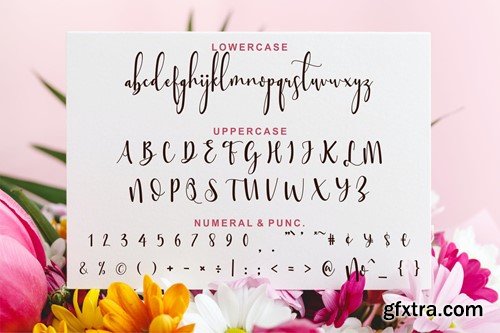 LOWERCASE
abcdefghijklmnopqrstuvwxyz
UPPERCASE
ABCDEFGHIJKLM
NOPQRSTUVWXYZ
NUMERAL & PUNC.
1 2 3 4 5 6 7 8 9 0 , . " ' " ' # ¢ ¥ $ €
& % © ( ) + - × ÷ | : ; < = > @ ^ _ { }
gfxtra.com